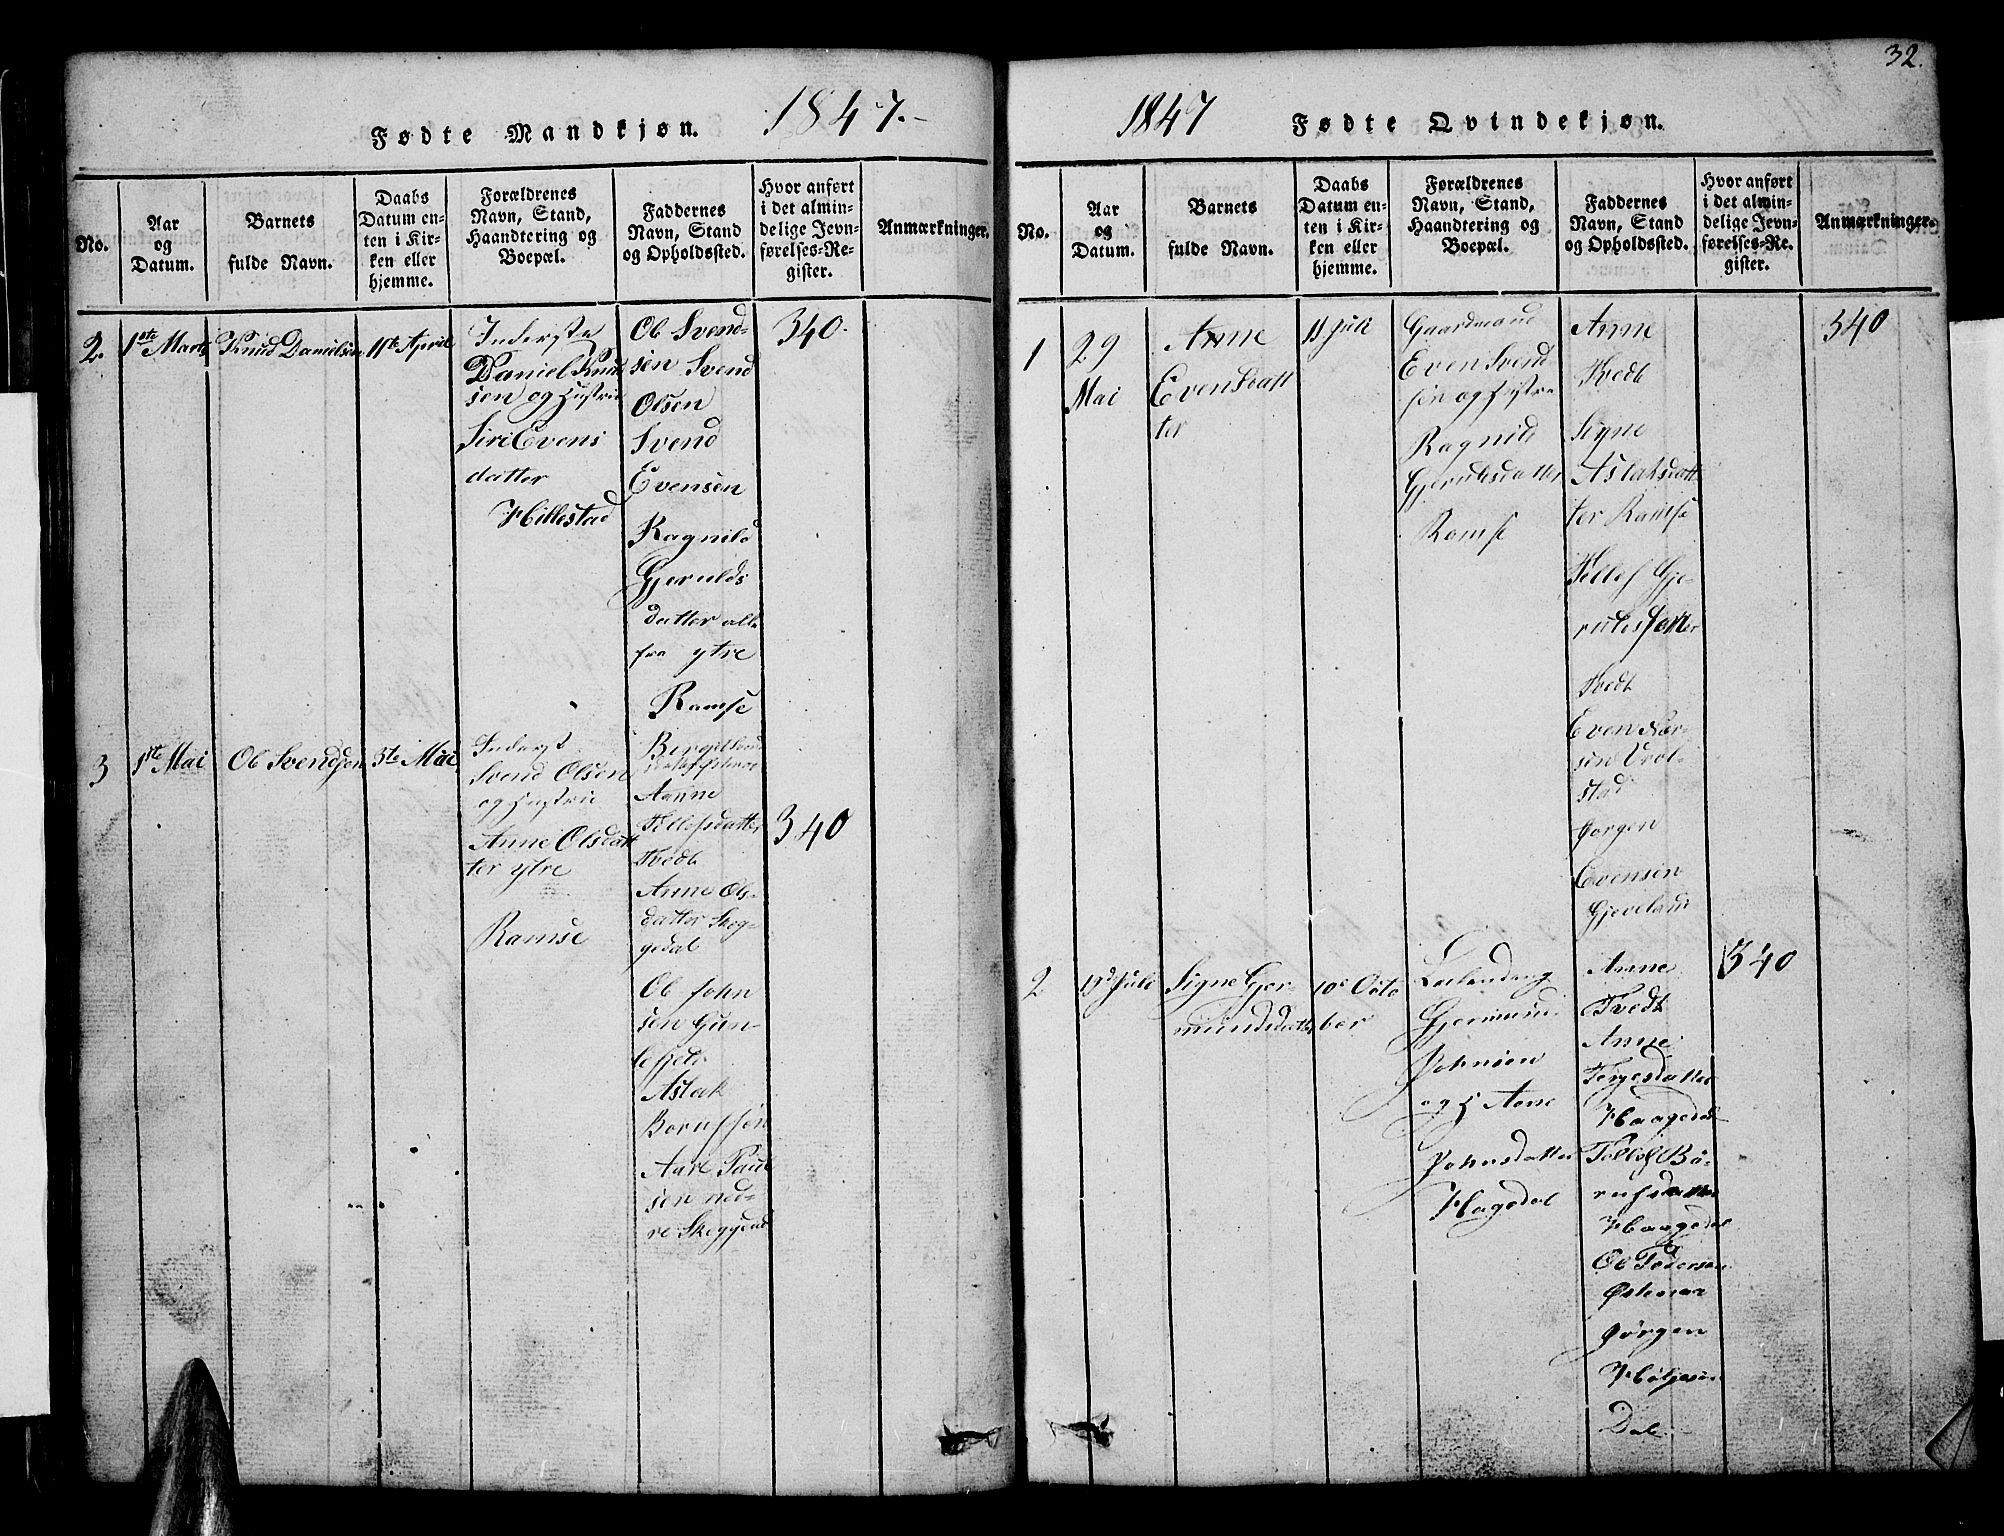 32.
Fødte Mandkjøn. 1847.
No.
Aar
og
Datum.
Barnets
fulde Navn.
Daabs
Datum en-
ten i Kir-
ken eller
hjemme.
Forældrenes
Navn, Stand,
Haandtering og
Boepæl.
Faddernes
Navn, Stand
og Opholdssted.
Hvor anført
i det almin-
delige Jevn-
førelses-Re-
gister.
Anmærkninger.
2.
1ste Marts
Knud Danielsen
11te April
Inderste
Daniel Knud
sen og Hustrue
Siri Evens
datter
Hillestad
Ole Svend-
sen Svend
Olsen
Svend
Evensen
Ragnild
Gjerulds
datter alle
fra ytre
Ramse
340.
3
1ste Mai
Ole Svendsen
3te Mai
Inderst
Svend Olsen
og Hustrue
Anne Olsdatt
ter ytre
Ramse
Anne
Tellefsdatter
Tvedt
Anne Ols-
datter Skeg-
gedal
Ole John
sen Gun-
Aslak
Aare Paul
sen ned-
re Skeggedal
340
1847 Fødte Qvindekjøn.
No.
Aar
og
Datum.
Barnets
fulde Navn.
Daabs
Datum en-
ten i Kir-
ken eller
hjemme.
Forældrenes
Navn, Stand,
Haandtering og
Boepæl.
Faddernes
Navn, Stand
og Opholdssted.
Hvor anført
i det almin-
delige Jevn-
førelses-Re-
gister.
Anmærkninger.
1
29
Mai
Anne
Evensdatt
ter
11 Juli
Gaardmand
Even Svend
sen og Hustrue
Ragnild
Gjeruldsdatter
Ramse
Anne
Tvedt
Signe
Aslaksdatt
ter Ramse
Tellef Gje-
Tvedt
Even
sen
stad
Jørgen
Evensen
Gjeveland
340
2
19d Juli
Signe Gjer-
mundsdatter
10e Octo
ber
Gjermund
Johnsen
og H Anne
Johnsdatter
Hagedal
Anne
Tvedt
Anne
Terjesdatter
Haagedal
Tellef Bö-
Haagedal
Ole Pedersen
Jørgen
Dal
340